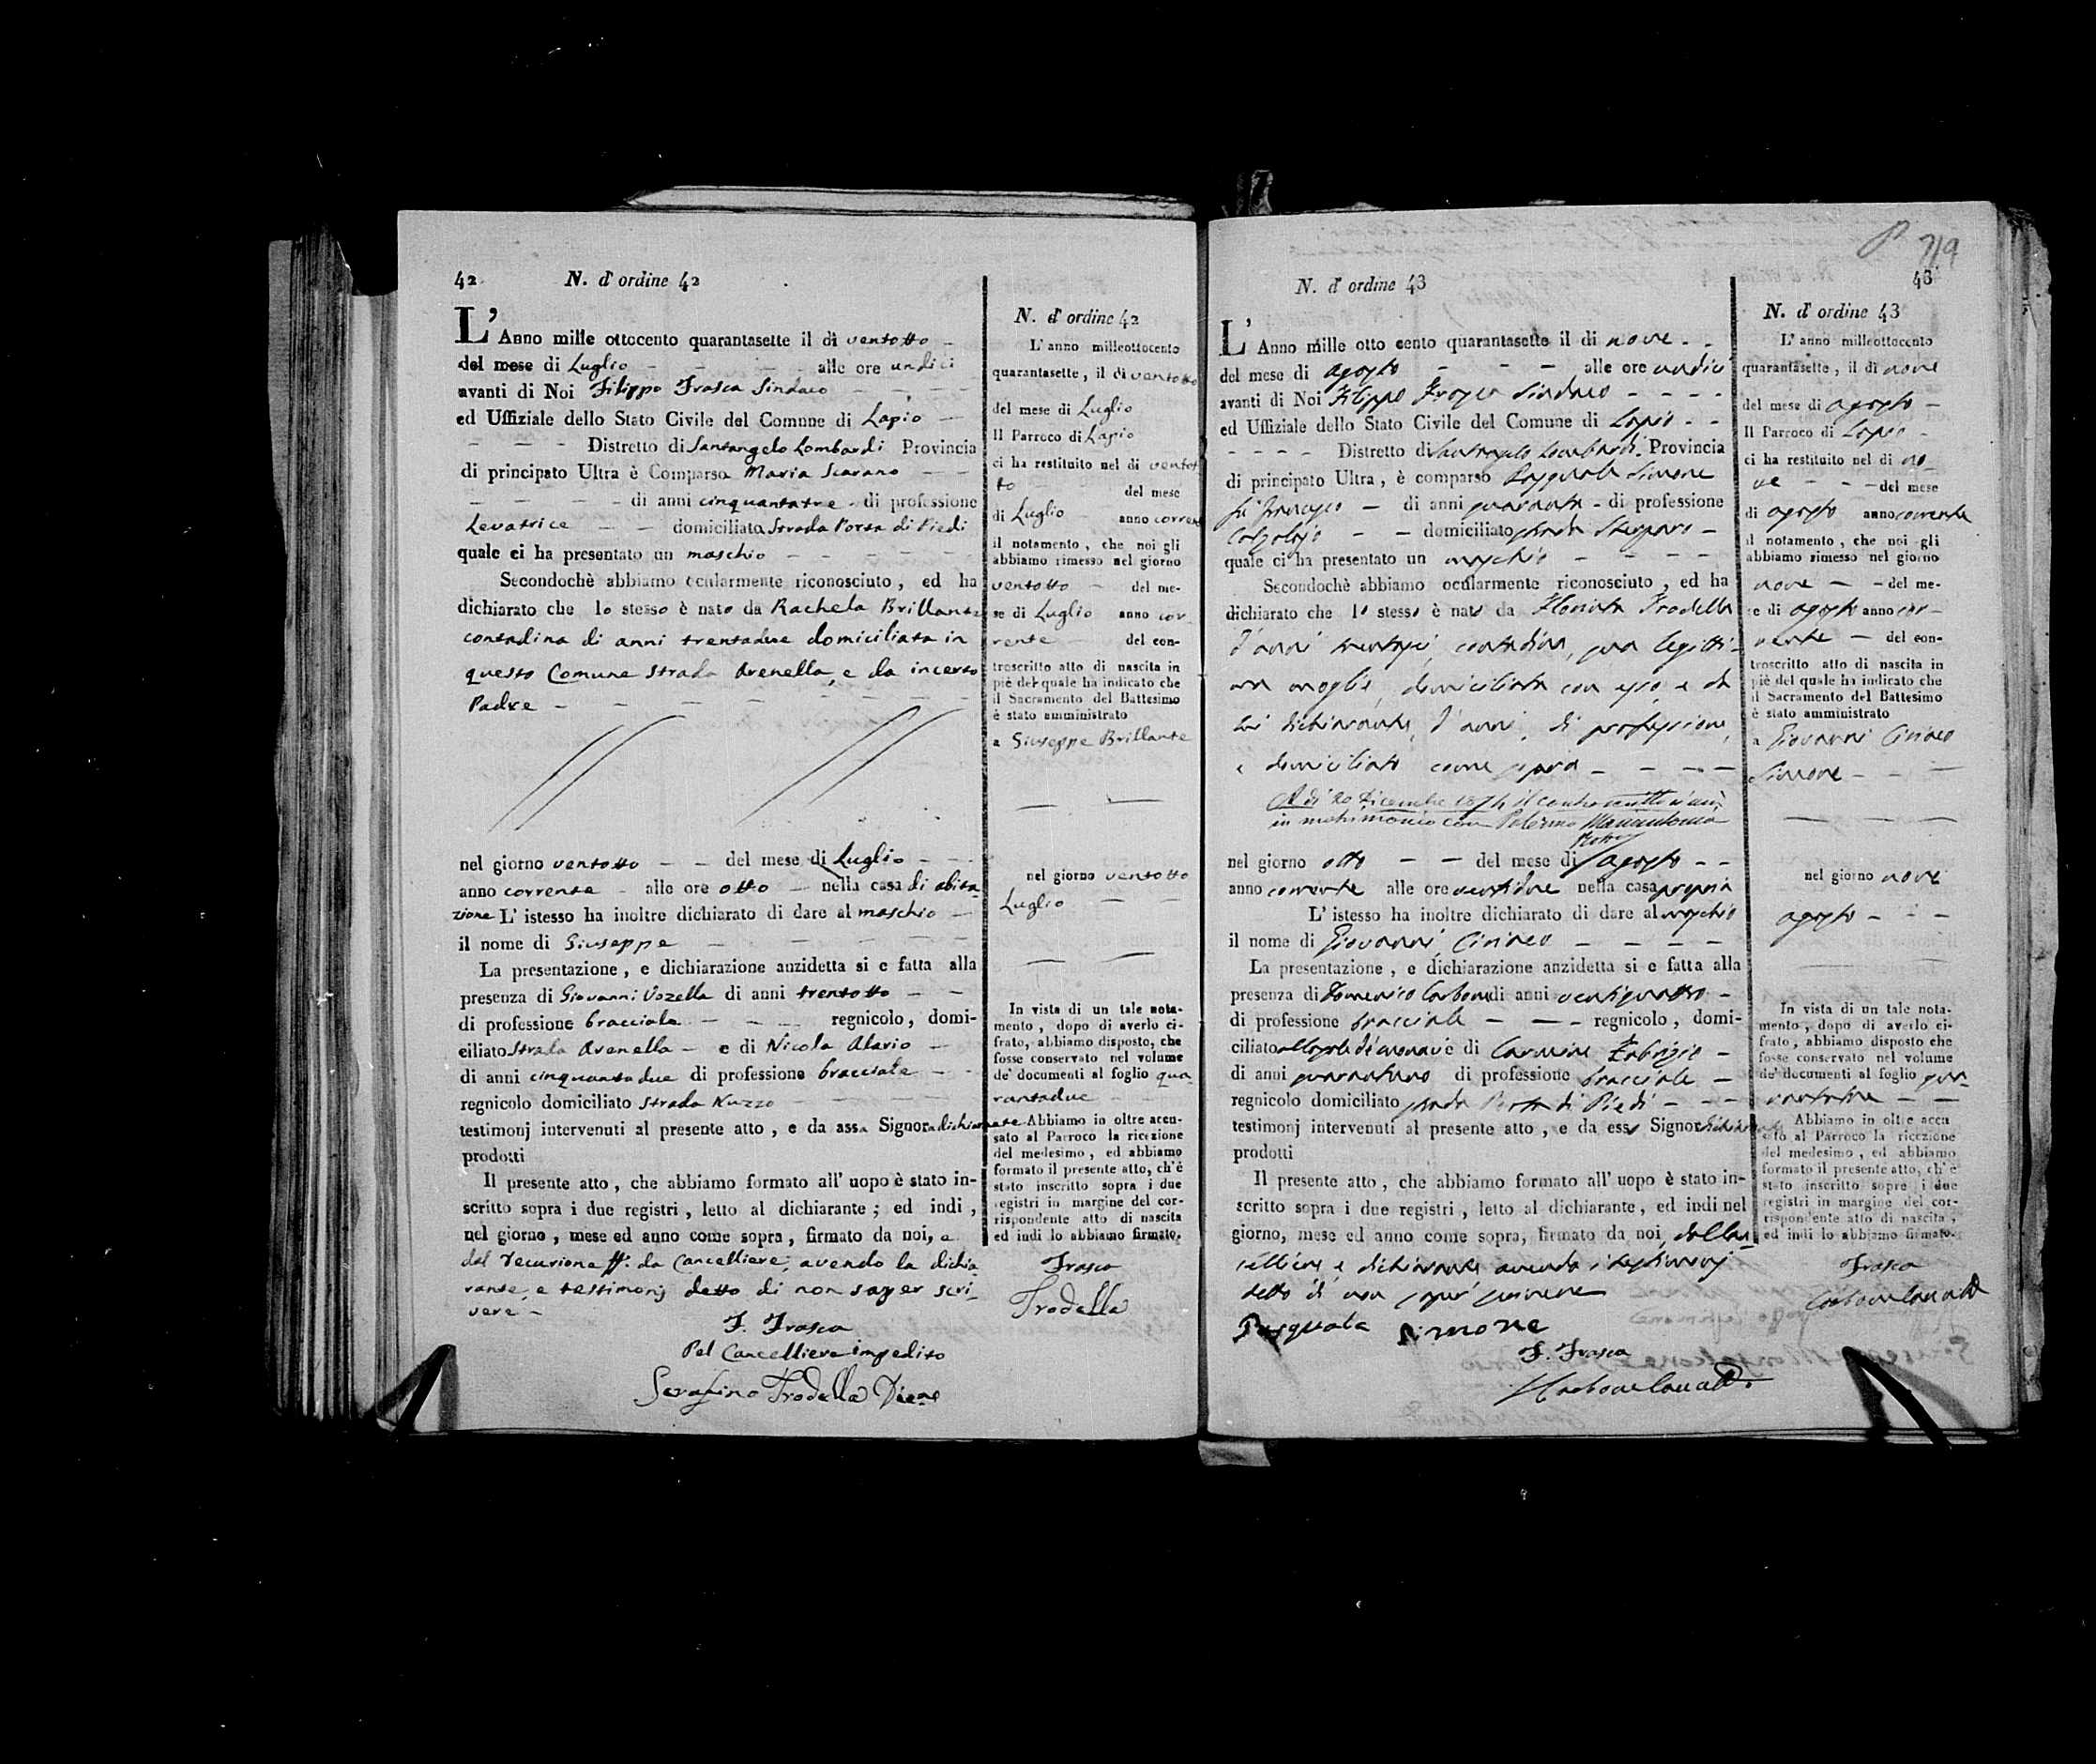 42 N. d'ordine 42
L'Anno mille ottocento quarantasette il di ventotto
del mese di Luglio alle ore undici
avanti di Noi Filippo Frasca Sindaco
ed Uffiziale dello Stato Civile del Comune di Lapio
Distretto di Santangelo Lombardi Provincia
di principato Ultra è Comparsa Maria Scarano
di anni cinquantatre di professione
Levatrice domiciliata Strada Porta di Piedi
quale ci ha presentato un maschio
Secondochè abbiamo ocularmente riconosciuto, ed ha
dichiarato che lo stesso è nato da Rachela Brillante
contadina di anni trentadue domiciliata in
questo Comune strada Arenella, e da incerto
Padre
nel giorno ventotto del mese di Luglio
anno corrente alle ore otto nella casa di abita
zione L'istesso ha inoltre dichiarato di dare al maschio
il nome di Giuseppe
La presentazione, e dichiarazione anzidetta si e fatta alla
presenza di Giovanni Vozella di anni trentotto
di professione bracciale regnicolo, domi-
ciliato Strada Arenella e di Nicola Alario
di anni cinquantadue di professione bracciale
regnicolo domiciliato strada
testimonj intervenuti al presente atto, e da assa Signora dichiarante
prodotti
Il presente atto, che abbiamo formato all'uopo è stato in-
scritto sopra i due registri, letto al dichiarante; ed indi,
nel giorno, mese ed anno come sopra, firmato da noi, e
dal Decurione ff. da Cancelliere, avendo la dichia
rante, e testimonj detto di non saper scri-
vere
F. Frasca
Pel Cancelliere impedito
Serafino Trodella
N. d'ordine 42
L'anno milleottocento
quarantasette, il di ventotto
del mese di Luglio
Il Parroco di Lapio
ci ha restituito nel di ventot
to del mese
di Luglio anno corrente
il notamento, che noi gli
abbiamo rimesso nel giorno
ventotto del me-
se di Luglio anno cor-
rente del con-
troscritto atto di nascita in
piè del quale ha indicato che
il Sacramento del Battesimo
è stato amministrato
a Giuseppe Brillante
nel giorno ventotto
Luglio
In vista di un tale nota-
mento, dopo di averlo ci-
frato, abbiamo disposto, che
fosse conservato nel volume
de' documenti al foglio qua-
rantadue
Abbiamo in oltre accu-
sato al Parroco la ricezione
del medesimo, ed abbiamo
formato il presente atto, ch'è
stato inscritto sopra i due
registri in margine del cor-
rispondente atto di nascita
ed indi lo abbiamo firmato.
Frasca
Trodella
43
N. d'ordine 43
L'Anno mille otto cento quarantasette il di nove
del mese di agosto alle ore undici
avanti di Noi Filippo Frasca Sindaco
ed Uffiziale dello Stato Civile del Comune di Lapio
Distretto di Santangelo Lombardi Provincia
di principato Ultra, è comparso Pasquale Simone
fu Francesco di anni quaranta di professione
Calzolajo domiciliato strada
quale ci ha presentato un maschio
Secondochè abbiamo ocularmente riconosciuto, ed ha
dichiarato che lo stesso è nato da Trodella
d'anni trentasei, contadina, sua legitti-
ma moglie, domiciliata con esso e da
lui dichiarante, d'anni, di professione,
e domiciliato come sopra
A di 20 Dicembre il controscritto si unì
in matrimonio con Palermo Mariantonia
nel giorno otto del mese di agosto
anno corrente alle ore ventidue nella casa propria
L'istesso ha inoltre dichiarato di dare al maschio
il nome di Giovanni Ciriaco
La presentazione, e dichiarazione anzidetta si e fatta alla
presenza di Domenico Carbone di anni ventiquattro
di professione bracciale regnicolo, domi-
ciliato e di Carmine Fabrizio
di anni quarantuno di professione bracciale
regnicolo domiciliato strada Porta di Piedi
testimonj intervenuti al presente atto, e da esso Signor dichiarante
prodotti
Il presente atto, che abbiamo formato all'uopo è stato in-
scritto sopra i due registri, letto al dichiarante, ed indi nel
giorno, mese ed anno come sopra, firmato da noi, dal Can-
celliere, e dichiarante avendo i testimonj
detto di non saper scrivere
Pasquale Simone
F. Frasca
N. d'ordine 43
L'anno milleottocento
quarantasette, il di nove
del mese di agosto
Il Parroco di Lapio
ci ha restituito nel di no-
ve del mese
di agosto anno corrente
il notamento, che noi gli
abbiamo rimesso nel giorno
nove del me-
se di agosto anno cor-
rente del con-
troscritto atto di nascita in
piè del quale ha indicato che
il Sacramento del Battesimo
è stato amministrato
a Giovanni Ciriaco
Simone
nel giorno nove
agosto
In vista di un tale nota-
mento, dopo di averlo ci-
frato, abbiamo disposto che
fosse conservato nel volume
de' documenti al foglio qua-
rantatre
Abbiamo in oltre accu
sato al Parroco la ricezione
del medesimo, ed abbiamo
formato il presente atto, ch'è
stato inscritto sopre i due
registri in margine del cor-
rispondente atto di nascita,
ed indi lo abbiamo firmato.
Frasca